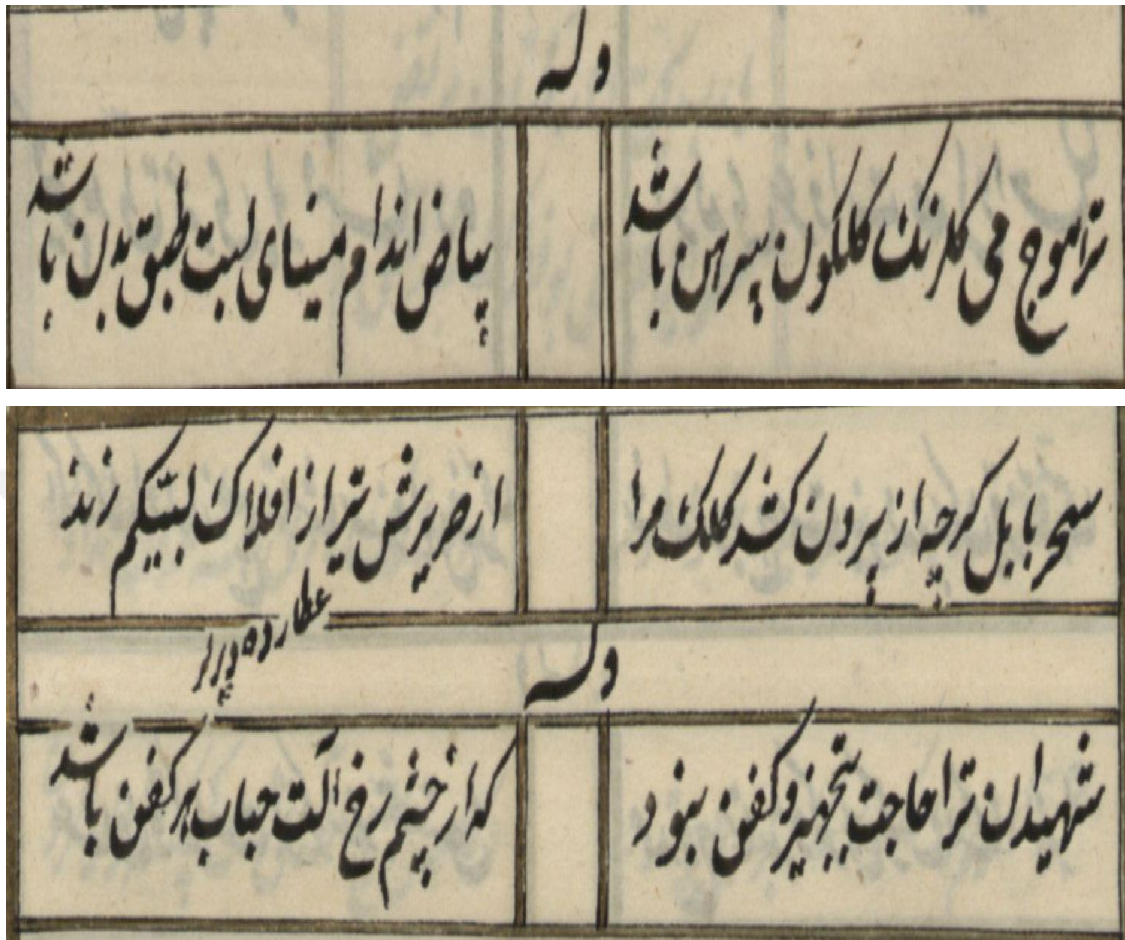 وله
ترا موج می کلرنک کلکون پیراهن باشد
بیاض اندام مینای لبت طبق بدن باشد
سحر بابل کرچه از بیرون کشد کلک مرا
از صریرش تیر از افلاک لبتیکم زند
عطارد
وله
شهیدان ترا حاجت بتجهیز و کفن نبود
که از چشم رخ الت حباب بر کفن باشد